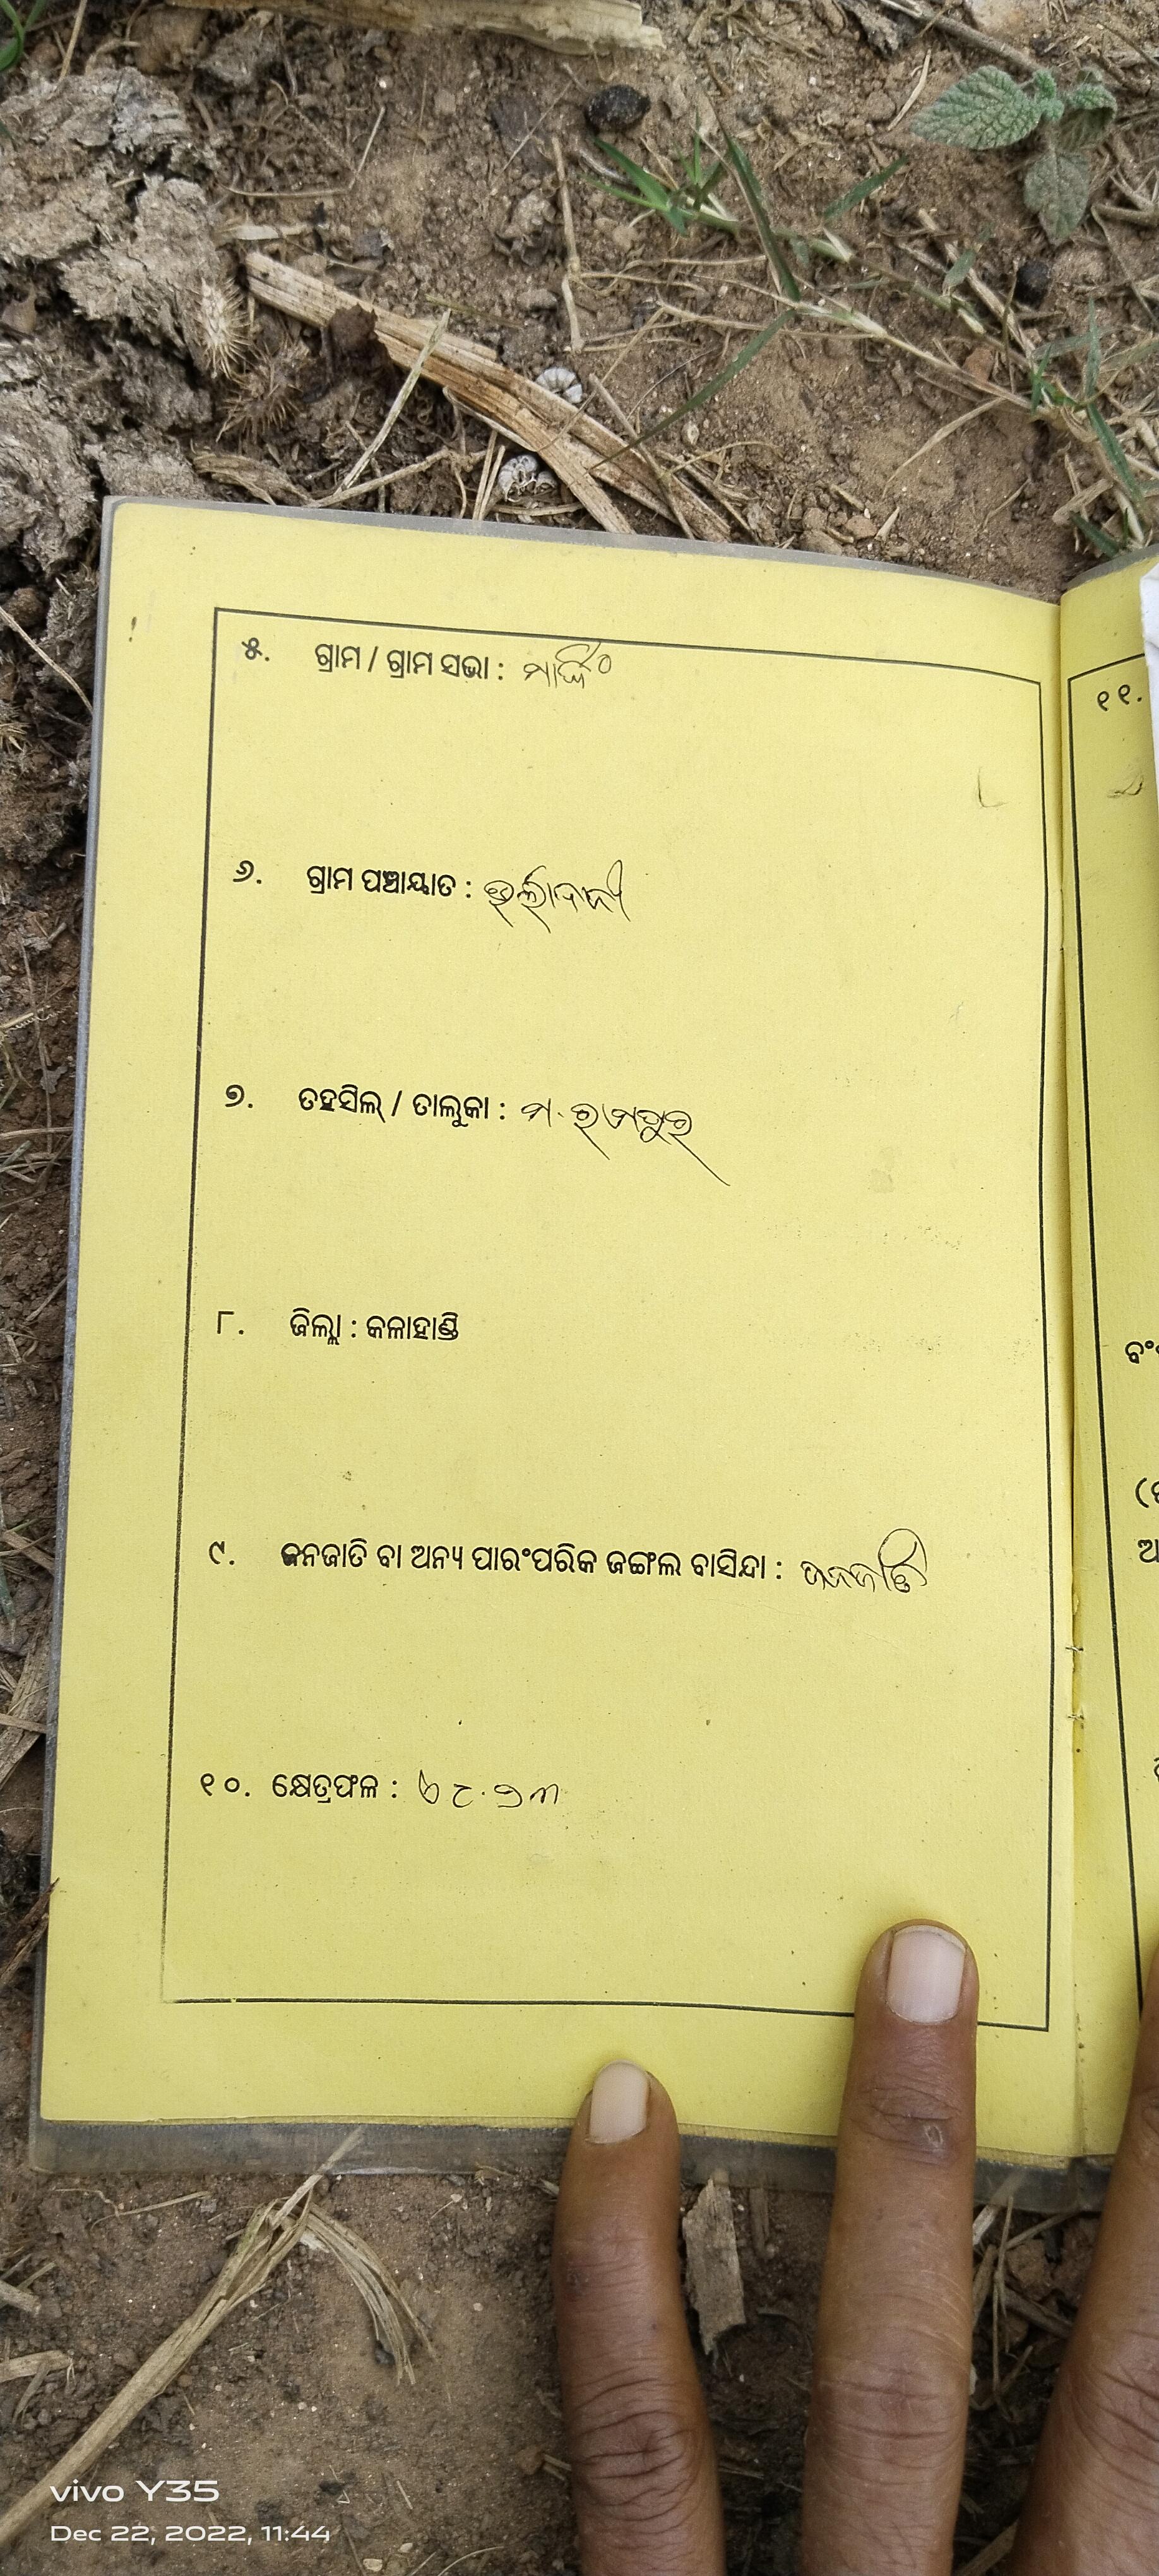 ୫. ଗ୍ରାମ / ଗ୍ରାମ ସଭା :
୬. ଗ୍ରାମ ପଞ୍ଚାୟାତ :
୭. ତହସିଲ୍ / ତାଲୁକା : ମ. ରାମପୁର
୮. ଜିଲ୍ଲା : କଳାହାଣ୍ଡି
୯. ଜନଜାତି ବା ଅନ୍ୟ ପାରଂପରିକ ଜଙ୍ଗଲ ବାସିନ୍ଦା : ଜନଜାତି
୧୦. କ୍ଷେତ୍ରଫଳ :
୧୧.
vivo Y35
Dec 22, 2022, 11:44